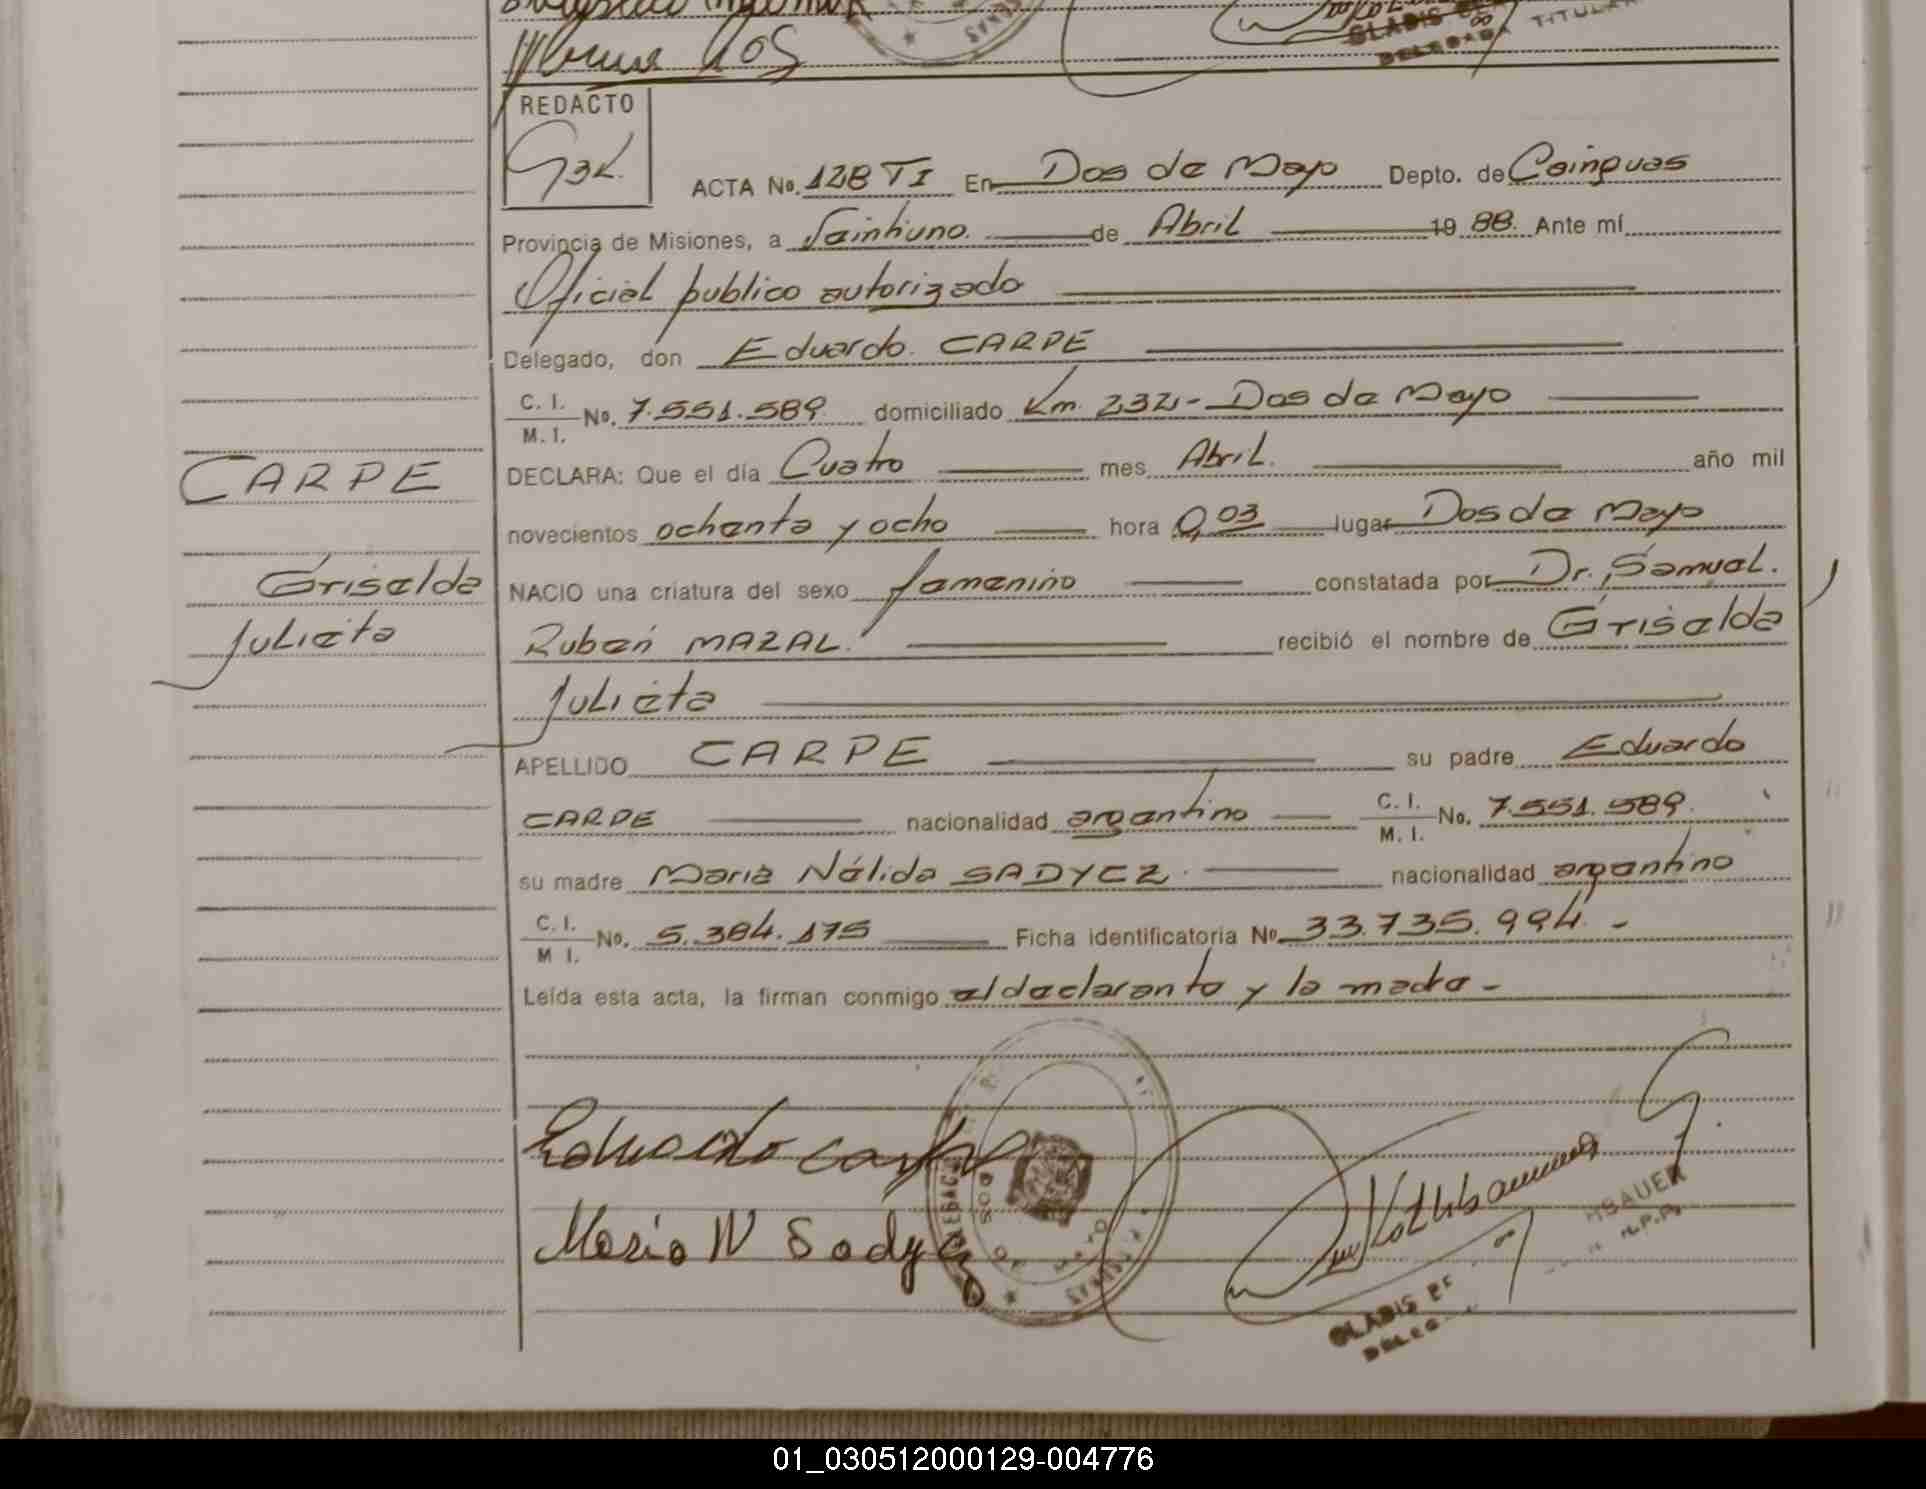 REDACTO
ACTA No. 128 TI En Dos de Mayo Depto. de Cainguas
Provincia de Misiones, a Vaintiuno. de Abril 19 88. Ante mí
Oficial publico autorizado
Delegado, don Eduardo. CARPE
C. I. / M. I. No. 7.551.589 domiciliado Km. 232 - Dos de Mayo
DECLARA: Que el día Cuatro mes Abril. año mil
CARPE
novecientos ochenta y ocho hora 0,03 lugar Dos de Mayo
Griselda
NACIO una criatura del sexo femenino constatada por Dr. Samuel.
Julieta
Rubén MAZAL. recibió el nombre de Griselda
Julieta
APELLIDO CARPE su padre Eduardo
CARPE nacionalidad argentino C. I. / M. I. No. 7.551.589.
su madre Maria Nélida SADYCZ. nacionalidad argentino
C. I. / M I. No. 5.384.175 Ficha identificatoria No 33.735.994. -
Leída esta acta, la firman conmigo el declarante y la madre -
Eduardo Carpe
Maria N Sadycz
GLADIS
01_030512000129-004776